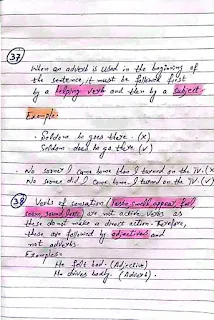 (37)
When an adverb is used in the beginning of
the sentence, it must be followed first
by a helping verb and then by a subject.
Example:
. Seldom he goes there. (X)
Seldom does he go there (√)
No sooner I came home than I turned on the TV. (X
No sooner did I come home, I turned on the TV (√)
(38) Verbs of sensation (Taste, smell, appear, feel,
seem, sound, look) are not active verbs as
these do not make a direct action. Therefore,
these are followed by adjectives and
not adverbs
Examples:-
He felt bad. (Adjective)
He drives badly. (Adverb).